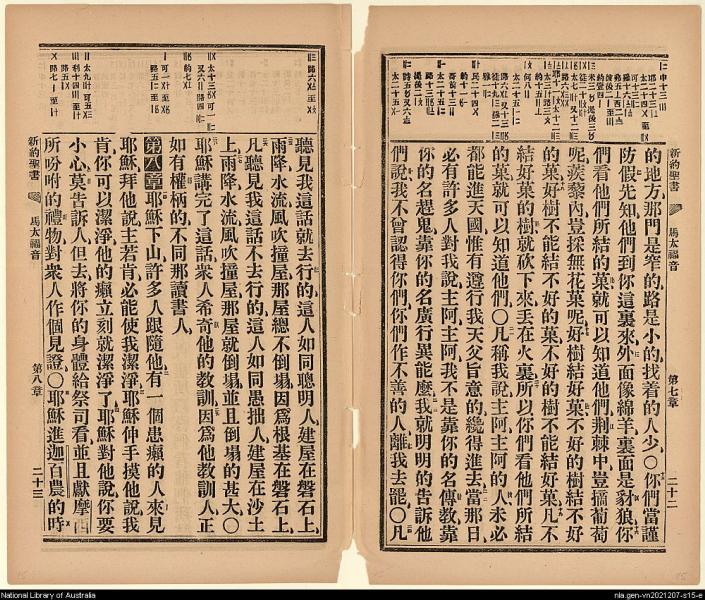 新約聖書
馬太福音
第七章
二十二
的地方、那門是窄的、路是小的、找着的人少、〇你們當謹
防假先知、他們到你這裏來、外面像綿羊、裏面是豺狼、你
們看他們所結的菓、就可以知道他們、荊棘中豈摘葡萄
呢、蒺藜內豈採無花菓呢、好樹結好菓、不好的樹結不好
的菓、好樹不能結不好的菓、不好的樹不能結好菓、凡不
結好菓的樹、就砍下來丟在火裏、所以你們看他們所結
的菓、就可以知道他們、〇凡稱我說、主阿、主阿的人、未必
都能進天國、惟有遵行我天父旨意的、纔得進去、當那日、
必有許多人對我說、主阿、主阿、我不是靠你的名傳教、靠
你的名趕鬼、靠你的名廣行異能麼、我就明明的告訴他
們說、我不曾認得你們、你們作不善的人、離我去罷、〇凡
聽見我這話就去行的、這人如同聰明人、建屋在磐石上、
雨降水流風吹、撞屋、那屋總不倒塌、因爲根基在磐石上、
凡聽見我這話不去行的、這人如同愚拙人、建屋在沙土
上、雨降水流風吹、撞屋、那屋就倒塌、並且倒塌的甚大、〇
耶穌講完了這話、衆人希奇他的教訓、因爲他教訓人、正
如有權柄的、不同那讀書人、
第八章 耶穌下山、許多人跟隨他、有一個患癩的人來見
耶穌、拜他說、主若肯、必能使我潔淨、耶穌伸手摸他說、我
肯、你可以潔淨、他的癩立刻就潔淨了、耶穌對他說、你要
小心、莫告訴人、但去將你的身體給祭司看、並且獻摩西
所吩咐的禮物、對衆人作個見證、〇耶穌進迦百農的時
新約聖書
馬太福音
第八章
二十三
National Library of Australia
nla.gen-vn2021207-s15-e